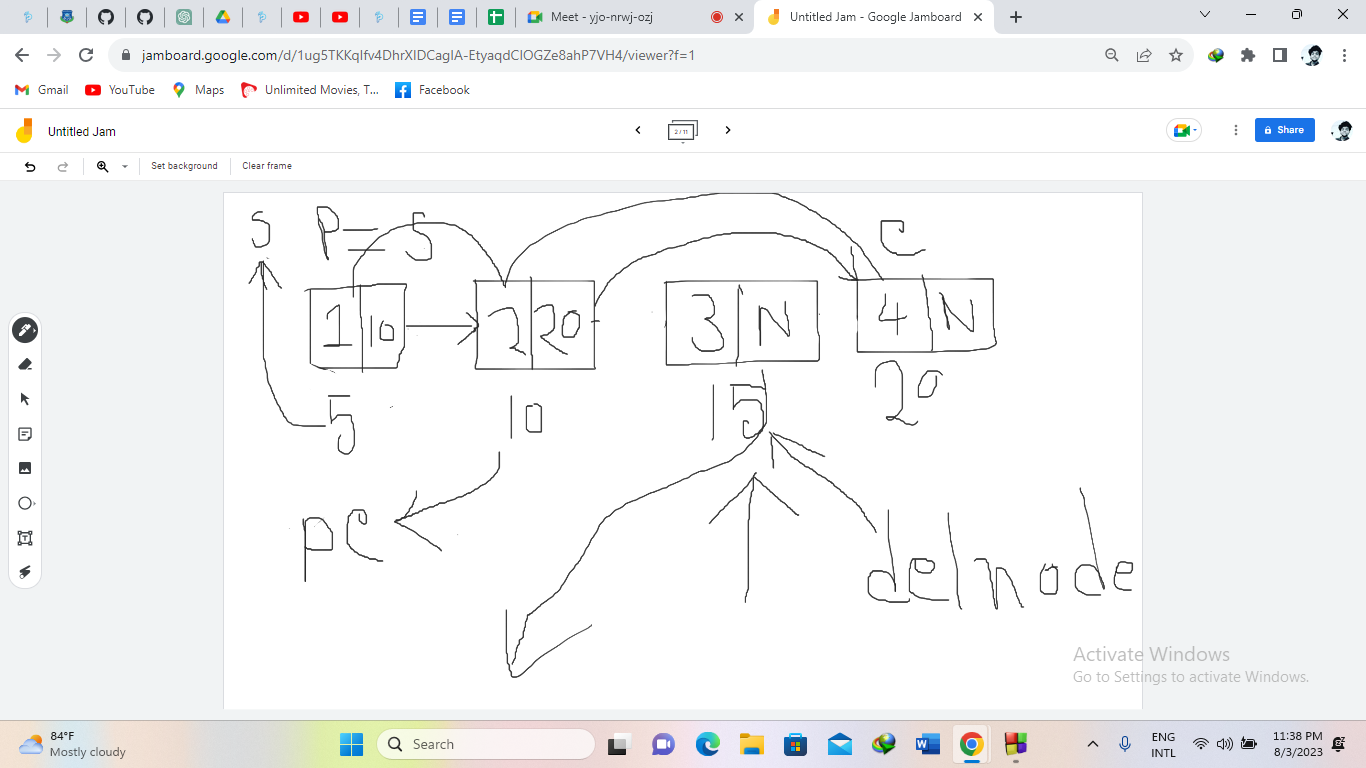 Meet - yjo-nrwj-ozj
Untitled Jam - Google Jamboard
jamboard.google.com/d/1ug5TKKqIfv4DhrXIDCagIA-EtyaqdCIOGZe8ahP7VH4/viewer?f=1
Gmail YouTube Maps Unlimited Movies, T... Facebook
Untitled Jam
2 / 11
Share
Set background Clear frame
S P = 5 C
1 10 2 20 3 N 4 N
5 10 15 20
pc
delnode
Activate Windows
Go to Settings to activate Windows.
84°F
Mostly cloudy
Search
ENG
INTL
11:38 PM
8/3/2023